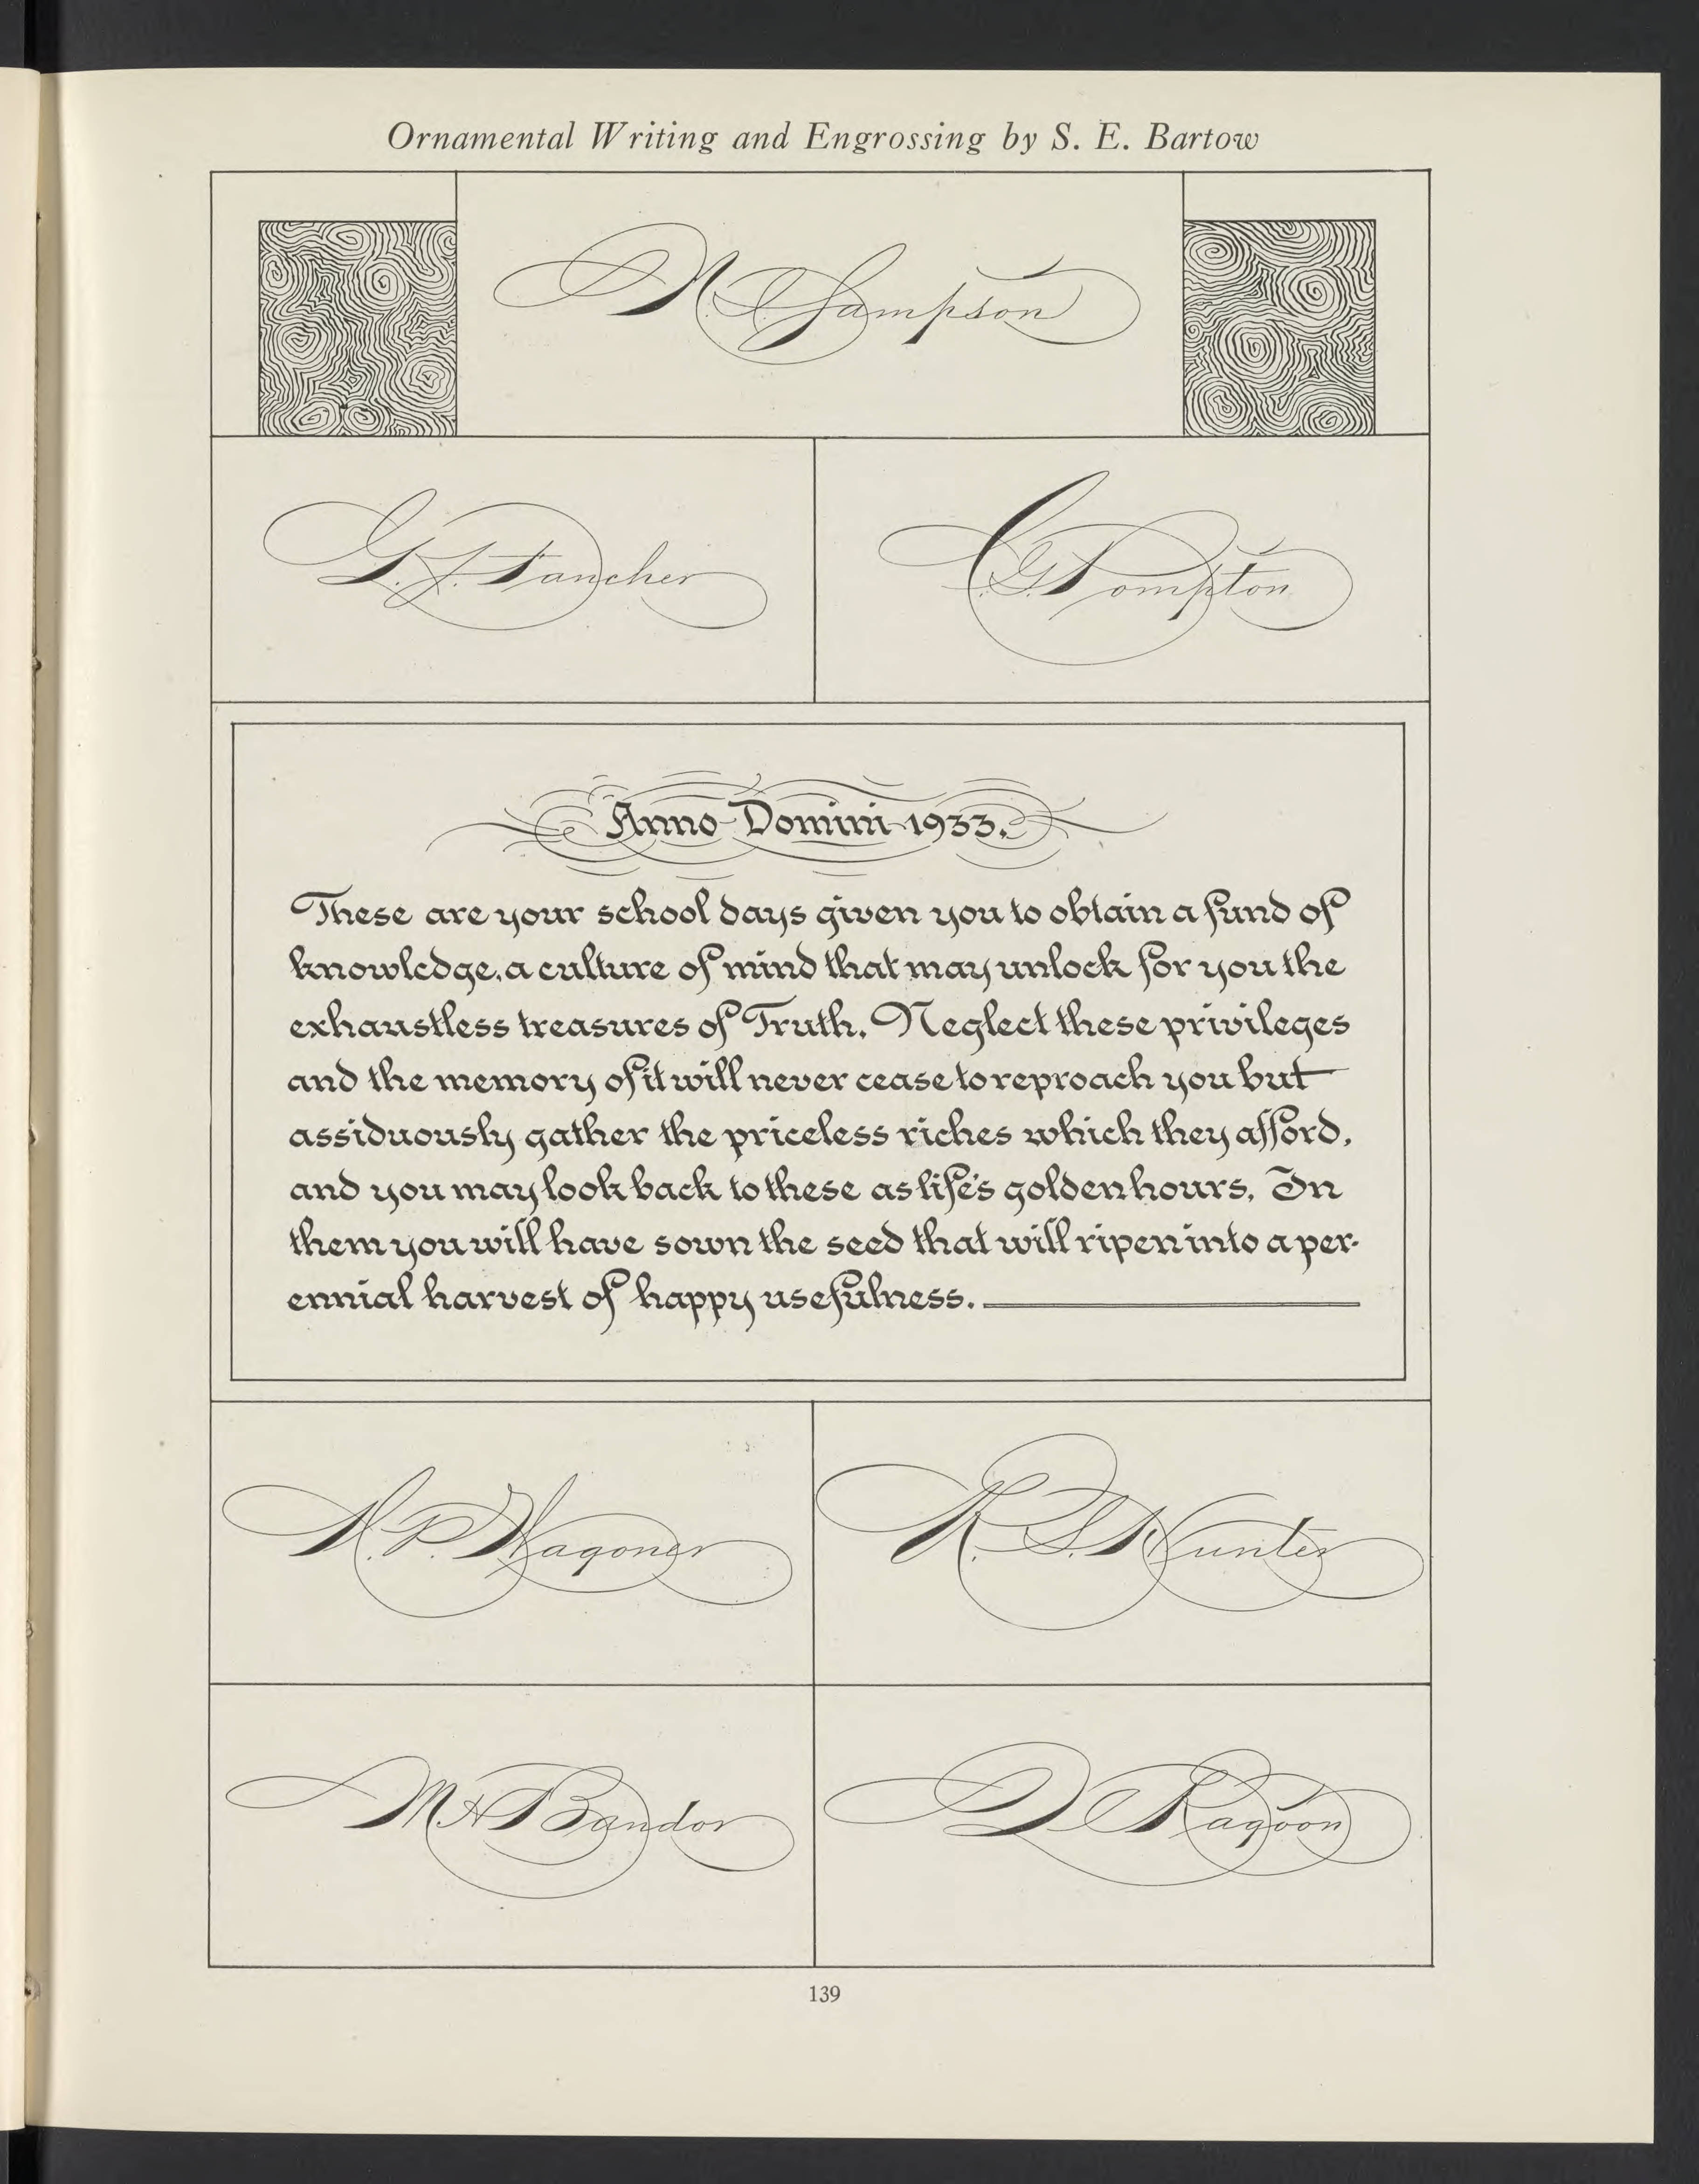 Ornamental Writing and Engrossing by S. E. Bartow
Sampson
G. F. Fancher
C. G. Pompton
Anno Domini 1933.
These are your school days given you to obtain a fund of
knowledge, a culture of mind that may unlock for you the
exhaustless treasures of Truth. Neglect these privileges
and the memory of it will never cease to reproach you but
assiduously gather the priceless riches which they afford,
and you may look back to these as life's golden hours. In
them you will have sown the seed that will ripen into a per-
ennial harvest of happy usefulness.
P. Wagoner
R. S. Hunter
M H Bandor
D C Ragoon
139